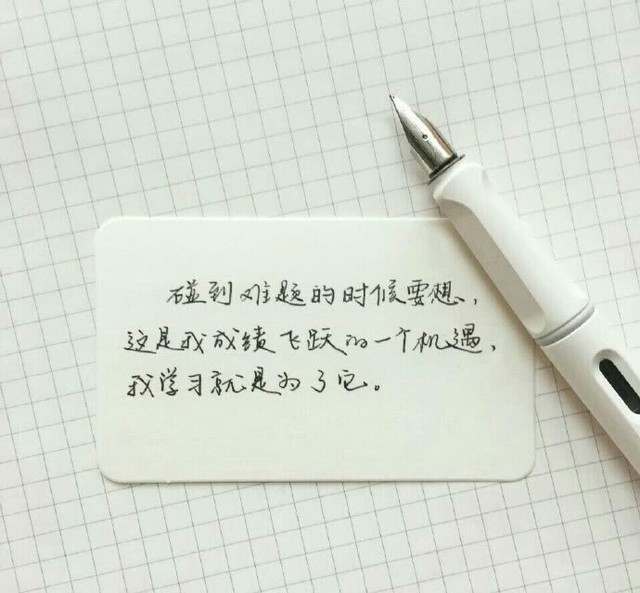 碰到难题的时候要想，
这是我成绩飞跃的一个机遇，
我学习就是为了它。